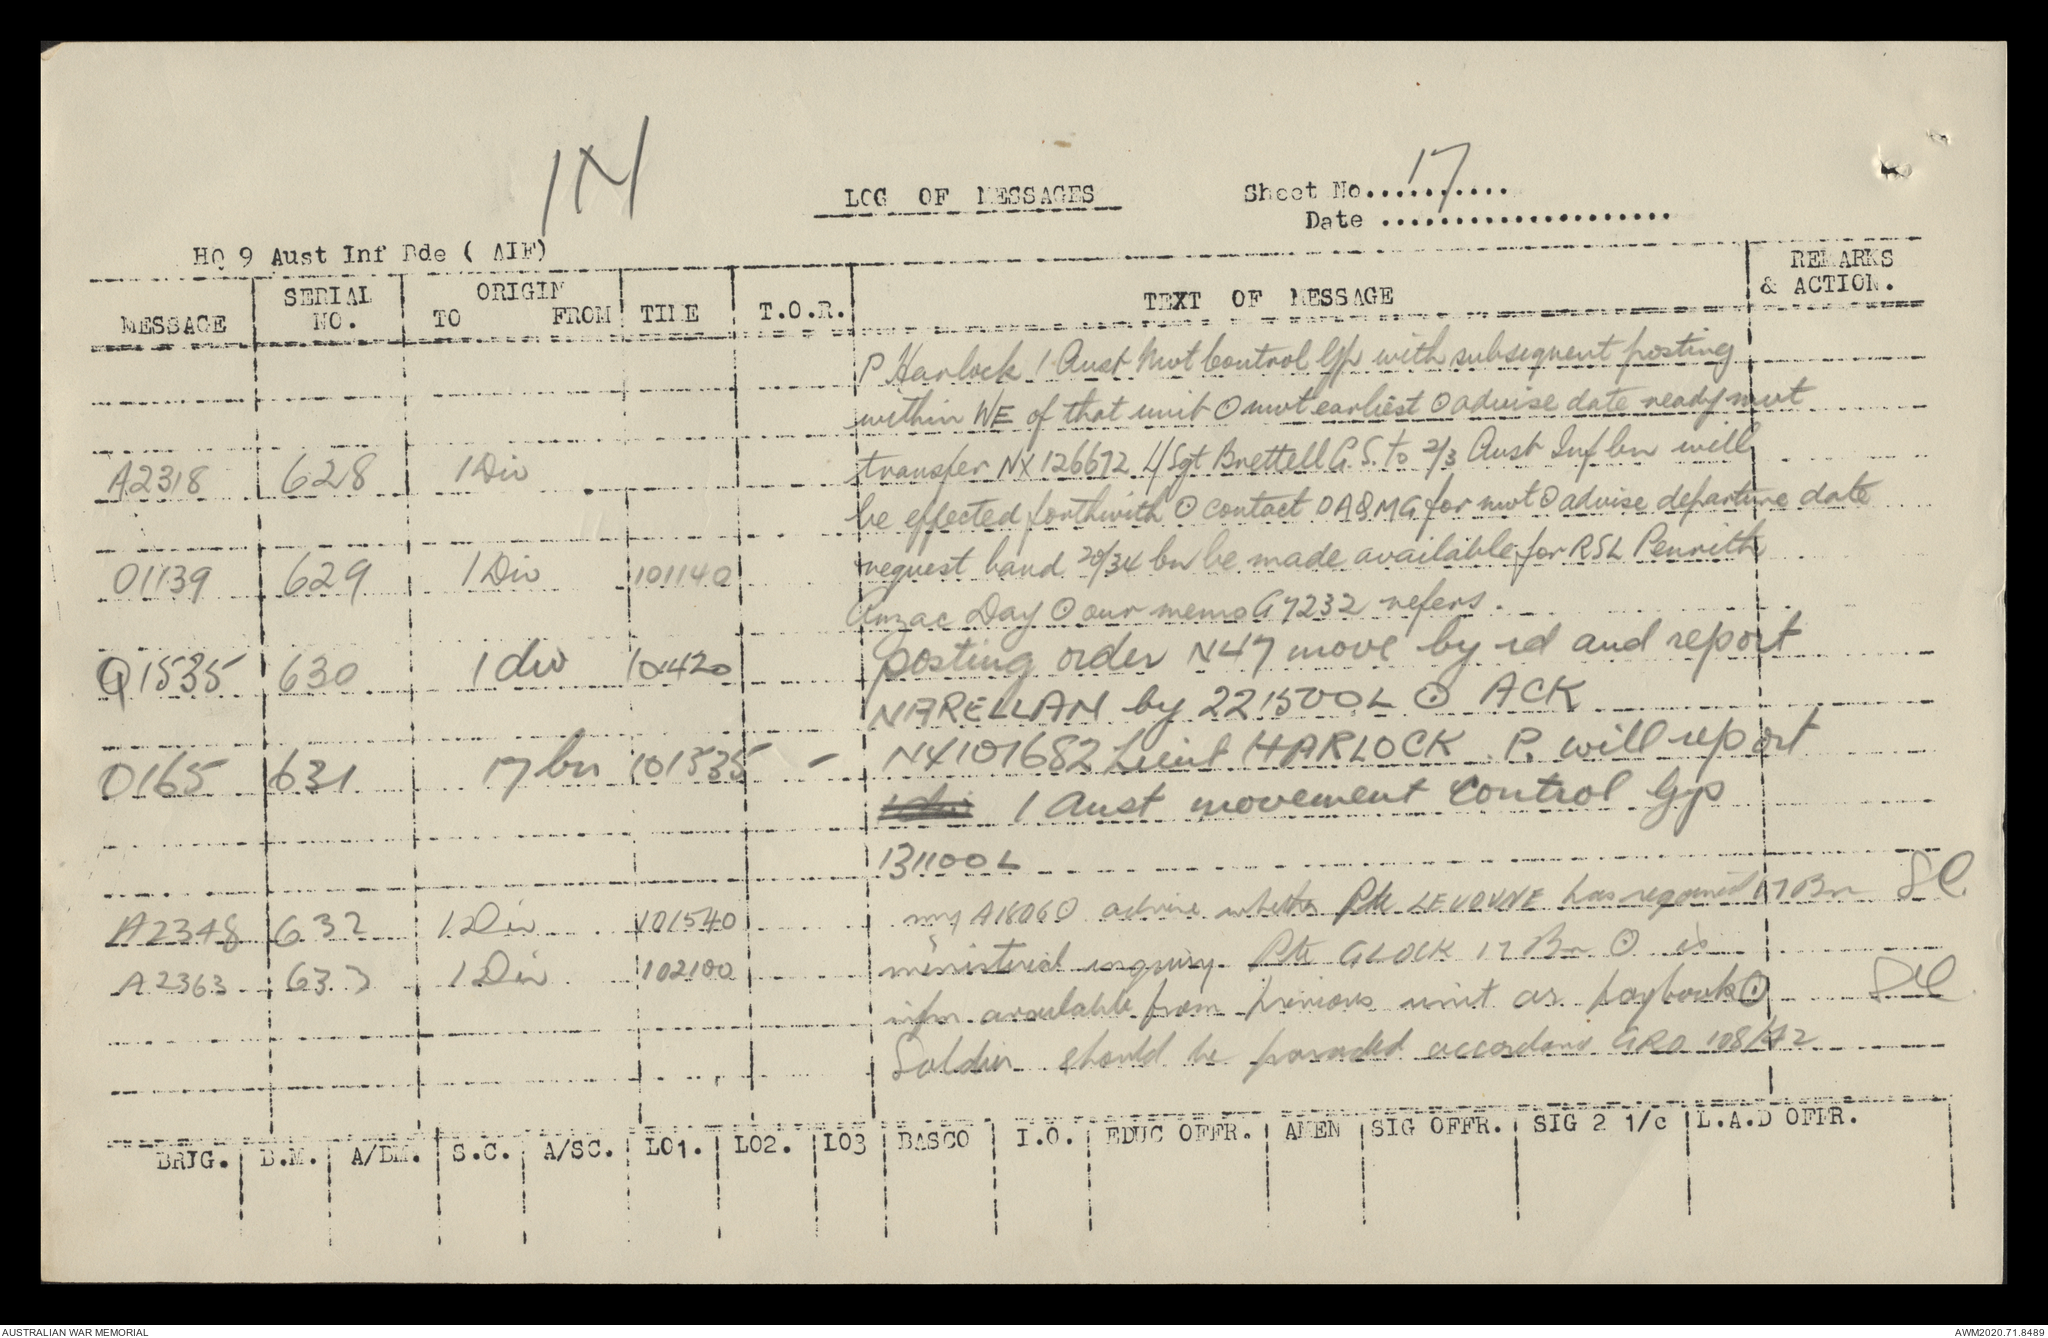 IN
LOG OF MESSAGES
Sheet No...17...
Date ....................
HQ 9 Aust Inf Bde ( AIF)
MESSAGE SERIAL NO. ORIGIN TO FROM TIME T.O.R. TEXT OF MESSAGE REMARKS & ACTION.
P Harlock 1 Aust Mvt Control Gp with subsequent posting
within WE of that unit ⊙ mvt earliest ⊙ advise date ready mvt
A2318 628 1 Div transfer NX126672 L/Sgt Brettell G.S. to 2/3 Aust Inf bn will
be effected forthwith ⊙ contact DAQMG for mvt ⊙ advise departure date
O1139 629 1 Div 101140 request band 20/34 bn be made available for RSL Penrith
Anzac Day ⊙ our memo G7232 refers.
Q1535 630 1 div 101420 posting order N47 move by rd and report
NARELLAN by 221500L ⊙ ACK
O165 631 17 bn 101535 - NX101682 Lieut HARLOCK P. will report
1 div 1 Aust movement control Gp
131100L
A2348 632 1 Div 101540 my A1806 ⊙ advise whether Pte has 17 Bn SC
A2363 633 1 Div 102100 ministerial inquiry Pte GLOCK 17 Bn ⊙ is
infm available from previous unit or paybook ⊙ SC
Soldier should be paraded accordance GRO 108/42
BRIG. B.M. A/BM. S.C. A/SC. LO1. LO2. LO3 BASCO I.O. EDUC OFFR. AMEN SIG OFFR. SIG 2 1/c L.A.D OFFR.
AUSTRALIAN WAR MEMORIAL
AWM2020.71.8489